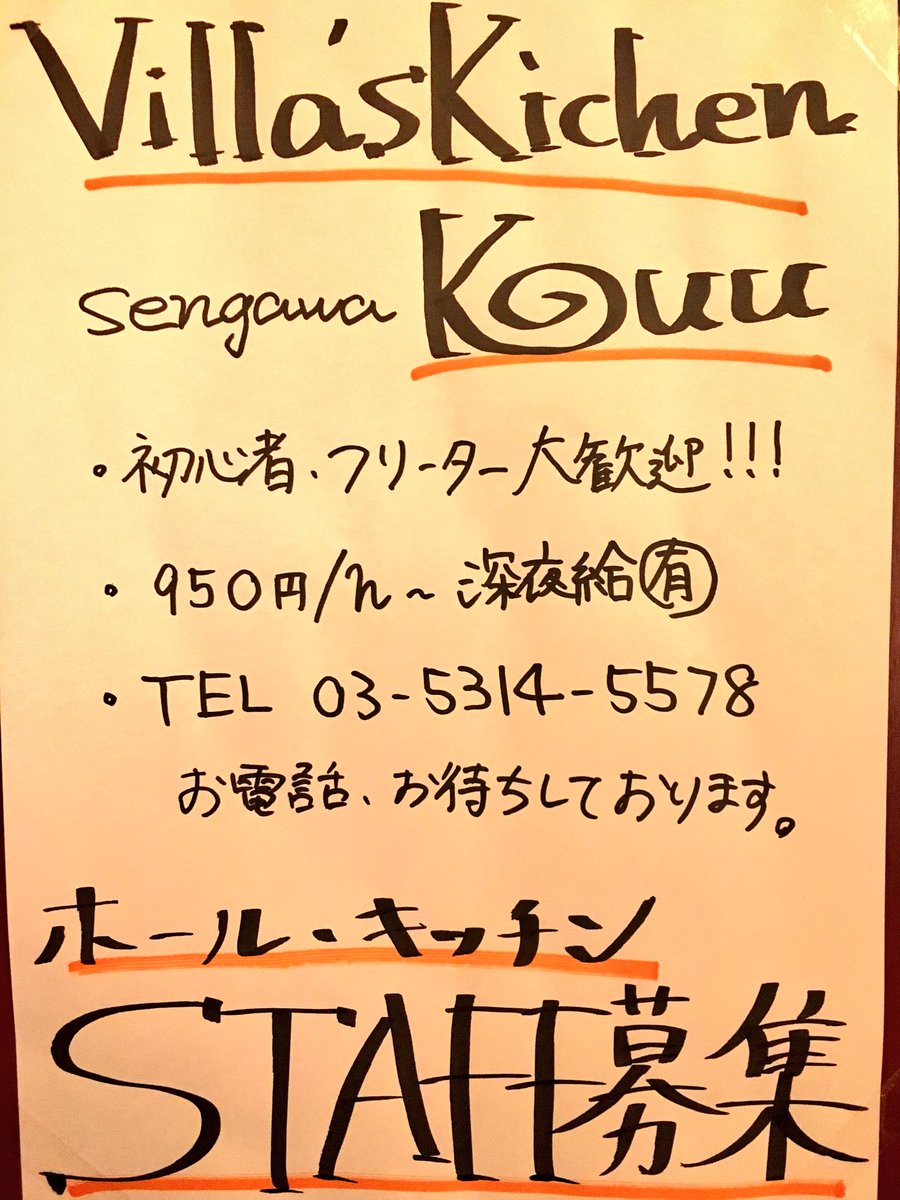 Villa'sKichen
sengawa Kouu
・初心者、フリーター大歓迎!!!
・950円/h~深夜給㊒
・TEL 03-5314-5578
お電話、お待ちしております。
ホール・キッチン
STAFF募集